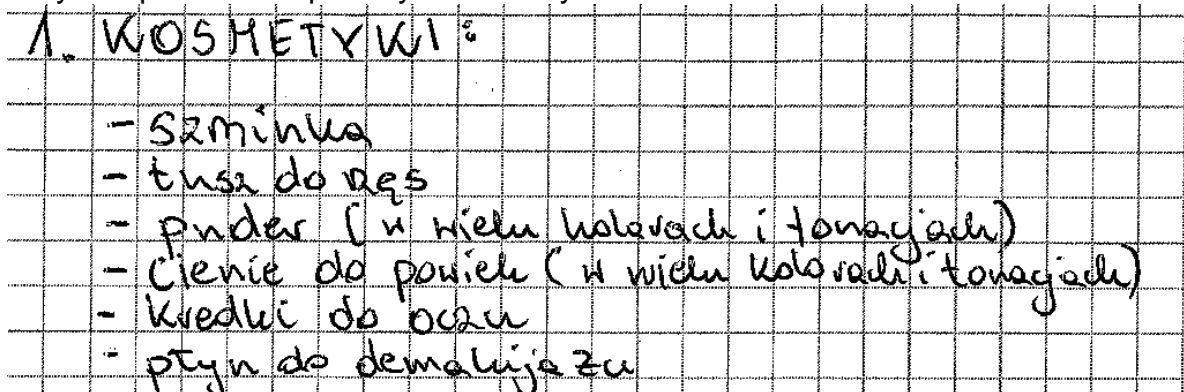 1. KOSMETYKI:
- szminka
- tusz do rzęs
- puder (w wielu kolorach i tonacjach)
- cienie do powiek (w wielu kolorach i tonacjach)
- kredki do oczu
- płyn do demakijażu